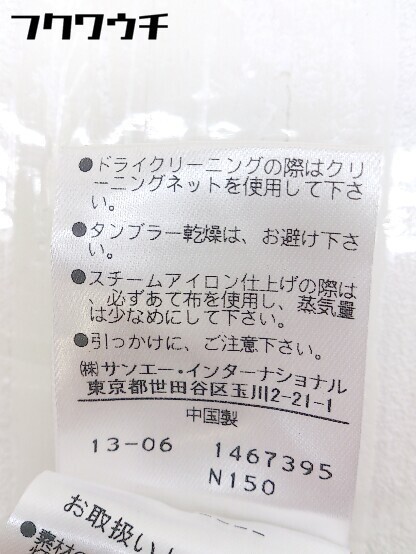 フクワウチ
●ドライクリーニングの際はクリ
ーニングネットを使用して下さ
い。
●タンブラー乾燥は、お避け下さ
い。
●スチームアイロン仕上げの際は
、必ずあて布を使用し、蒸気量
は少なめにして下さい。
●引っかけに、ご注意下さい。
㈱サンエー・インターナショナル
東京都世田谷区玉川2-21-1
中国製
13-06 1467395
N150
お取扱い
●素材の